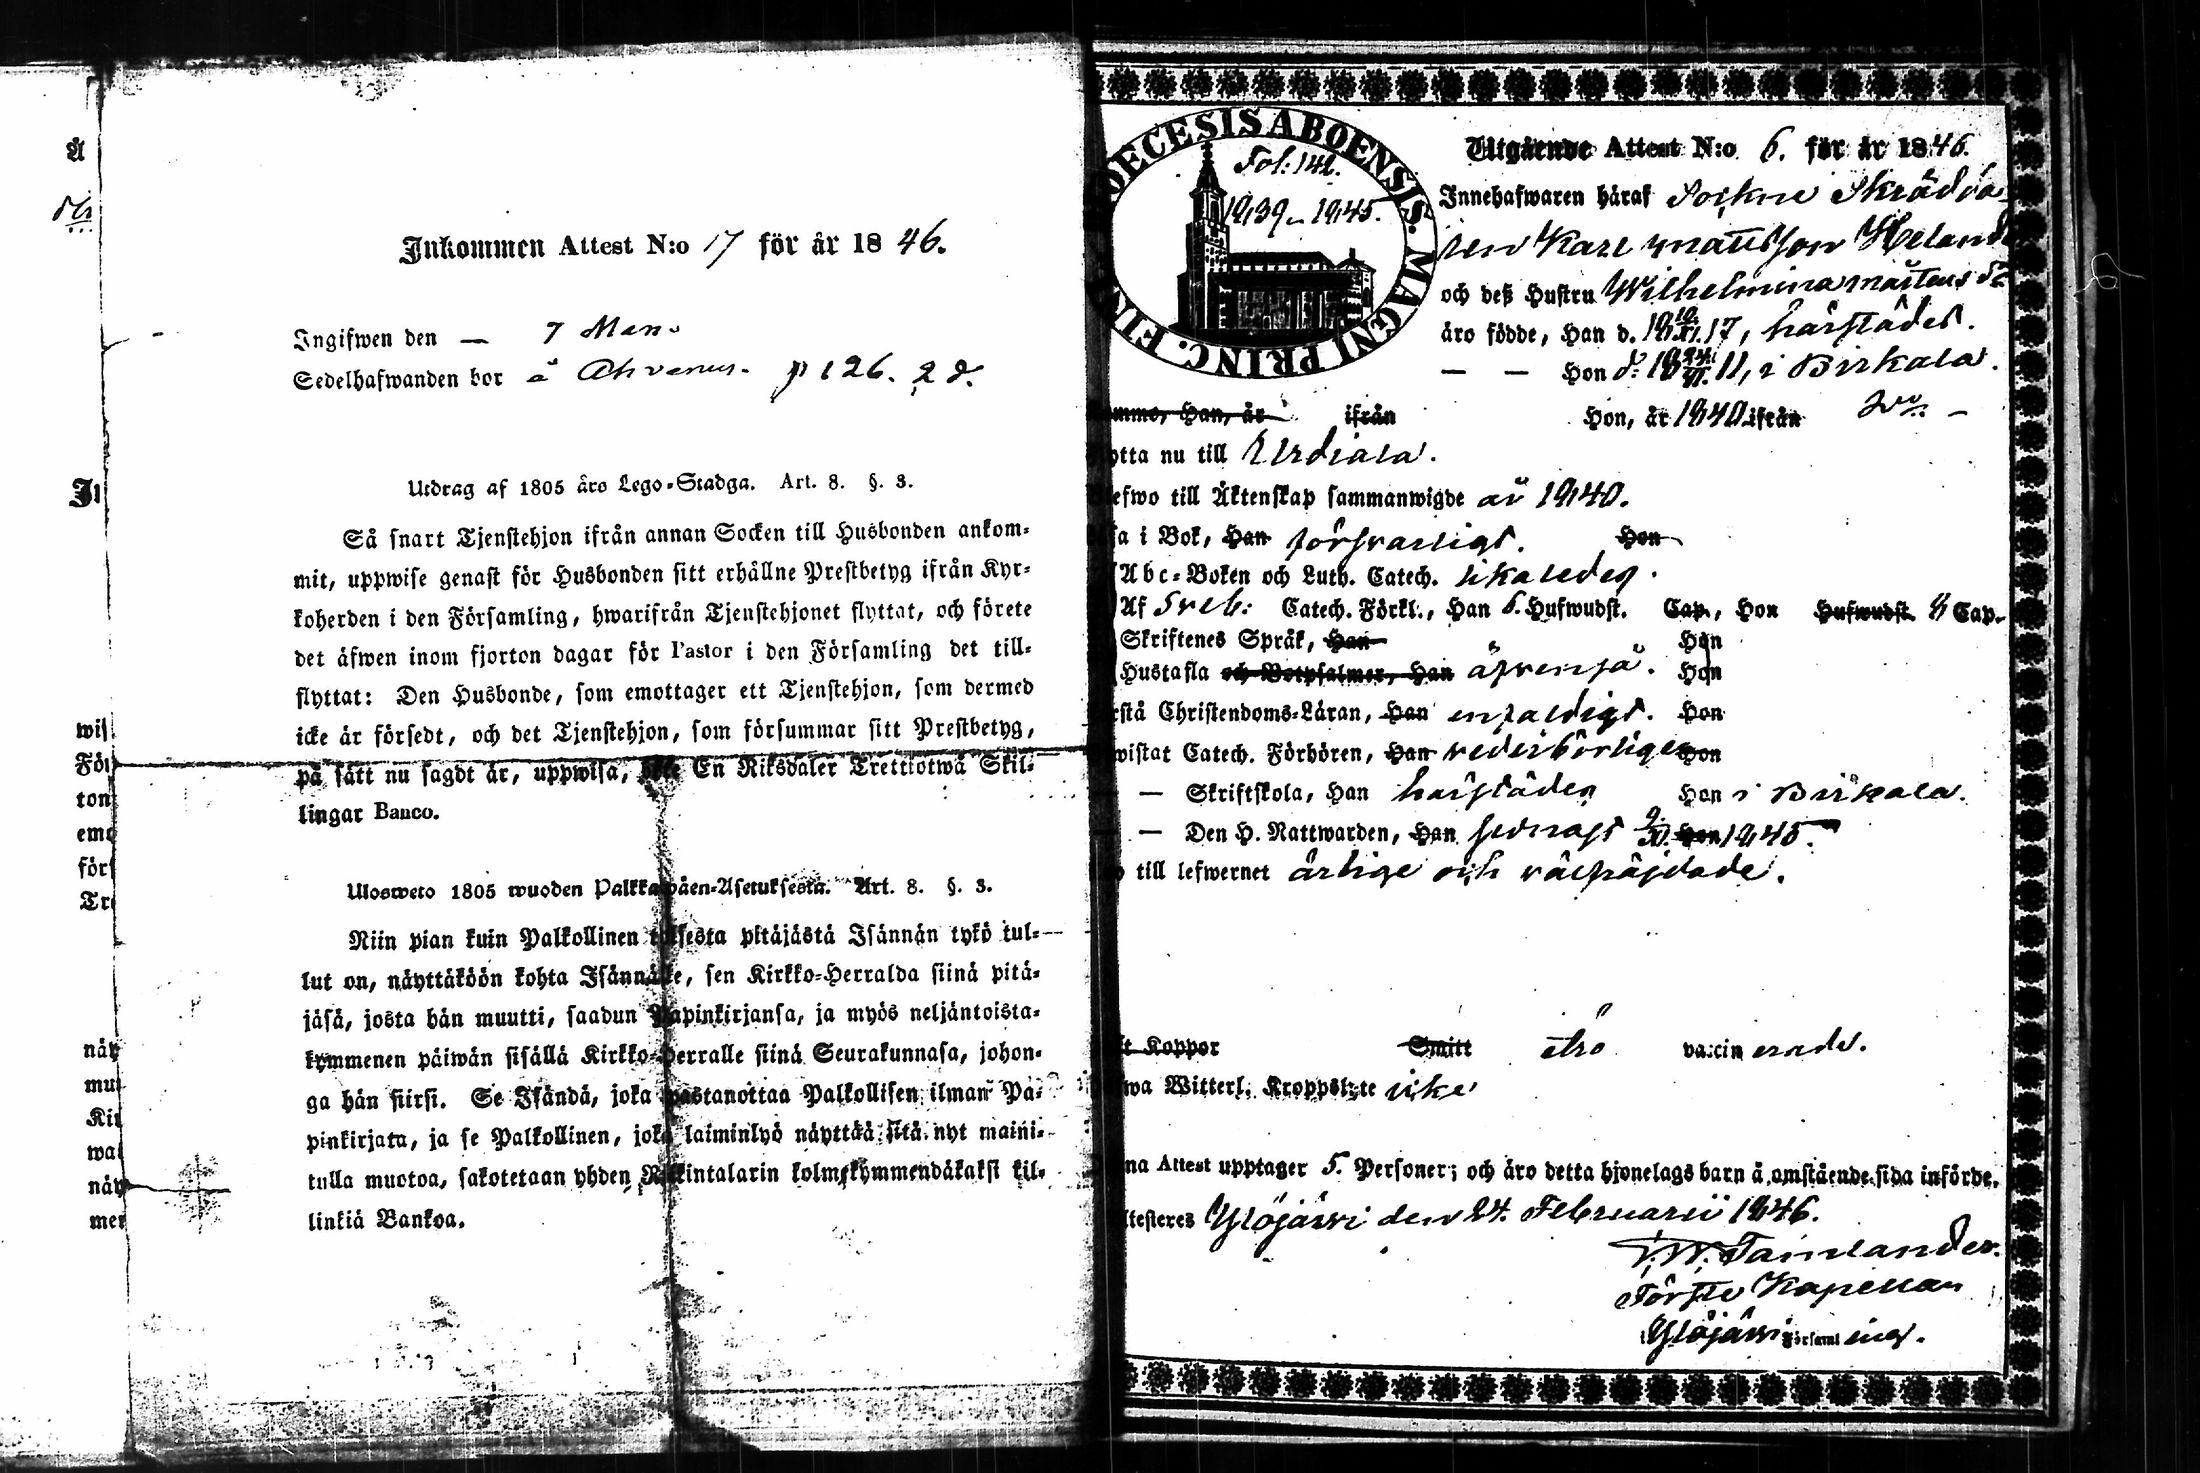 Å
Il
wis
För
ton
emo
förs
Tre
näy
muu
Kir
wa
näy
men
Inkommen Attest N:o 17 för år 1846.
Ingifwen den — 7 Mars
Sedelhafwanden bor å Ahvenus. p 126. 2 d.
Utdrag af 1805 års Lego-Stadga. Art. 8. §. 3.
Så snart Tjenstehjon ifrån annan Socken till Husbonden ankom-
mit, uppwise genast för Husbonden sitt erhållne Prestbetyg ifrån Kyr-
koherden i den Församling, hwarifrån Tjenstehjonet flyttat, och förete
det äfwen inom fjorton dagar för Pastor i den Församling det till-
flyttat: Den Husbonde, som emottager ett Tjenstehjon, som dermed
icke är försedt, och det Tjenstehjon, som försummar sitt Prestbetyg,
på sätt nu sagdt är, uppwisa, böte En Riksdaler Trettiotwå Skil-
lingar Banco.
Ulosweto 1805 wuoden Palkkawäen-Asetuksesta. Art. 8. §. 3.
Niin pian kuin Palkollinen toisesta pitäjästä Isännän tykö tul-
lut on, näyttäköön kohta Isännälle, sen Kirkko-Herralda siinä pitä-
jäsä, josta hän muutti, saadun Papinkirjansa, ja myös neljäntoista-
kymmenen päiwän sisällä Kirkko-Herralle siinä Seurakunnasa, johon-
ga hän siirsi. Se Isändä, joka wastanottaa Palkollisen ilman Pa-
pinkirjata, ja se Palkollinen, joka laiminlyö näyttää sitä nyt maini-
tulla muotoa, sakotetaan yhden Riikintalarin kolmekymmendäkaksi kil-
linkiä Bankoa.
DIOECESIS ABOENSIS. MAGNI PRINC. FIN
Fol. 142.
1839–1845.
Utgående Attest N:o 6. för år 1846.
Innehafwaren häraf Sockne Skrädda-
ren Karl Mattsson Heland
och dess Hustru Wilhelmina Mårtensdr
äro födde, Han d. 18 10/XI. 17, härstädes.
— — Hon d: 18 24/VI. 11, i Birkala.
komme, Han, år ifrån Hon, år 1840 ifrån —
flytta nu till Urdiala.
blefwo till Äktenskap sammanwigde år 1840.
läsa i Bok, Han försvarligt. Hon
Abc-Boken och Luth. Catech. likaledes.
Af Sveb: Catech. Förkl., Han 6. Hufwudst. Cap., Hon Hufwudst. 4 Cap.
Skriftenes Språk, Han Hon
Hustafla och Botpsalmer, Han äfvenså. Hon
förstå Christendoms-Läran, Han enfaldigt. Hon
bewistat Catech. Förhören, Han vederbörligen Hon
— Skriftskola, Han härstädes Hon i Birkala.
— Den H. Nattwarden, Han sednast 9/XI. Hon 1845.
till lefwernet ärlige och välfräjdade.
haft Koppor Smitt äro vaccinerade.
hafwa Witterl. Kroppslyte icke
Denna Attest upptager 5. Personer; och äro detta hjonelags barn å omstående sida införde.
Attesteres Ylöjärvi den 24. Februarii 1846.
Tamlander.
Förste Kapellan
i Ylöjärvi Församling.